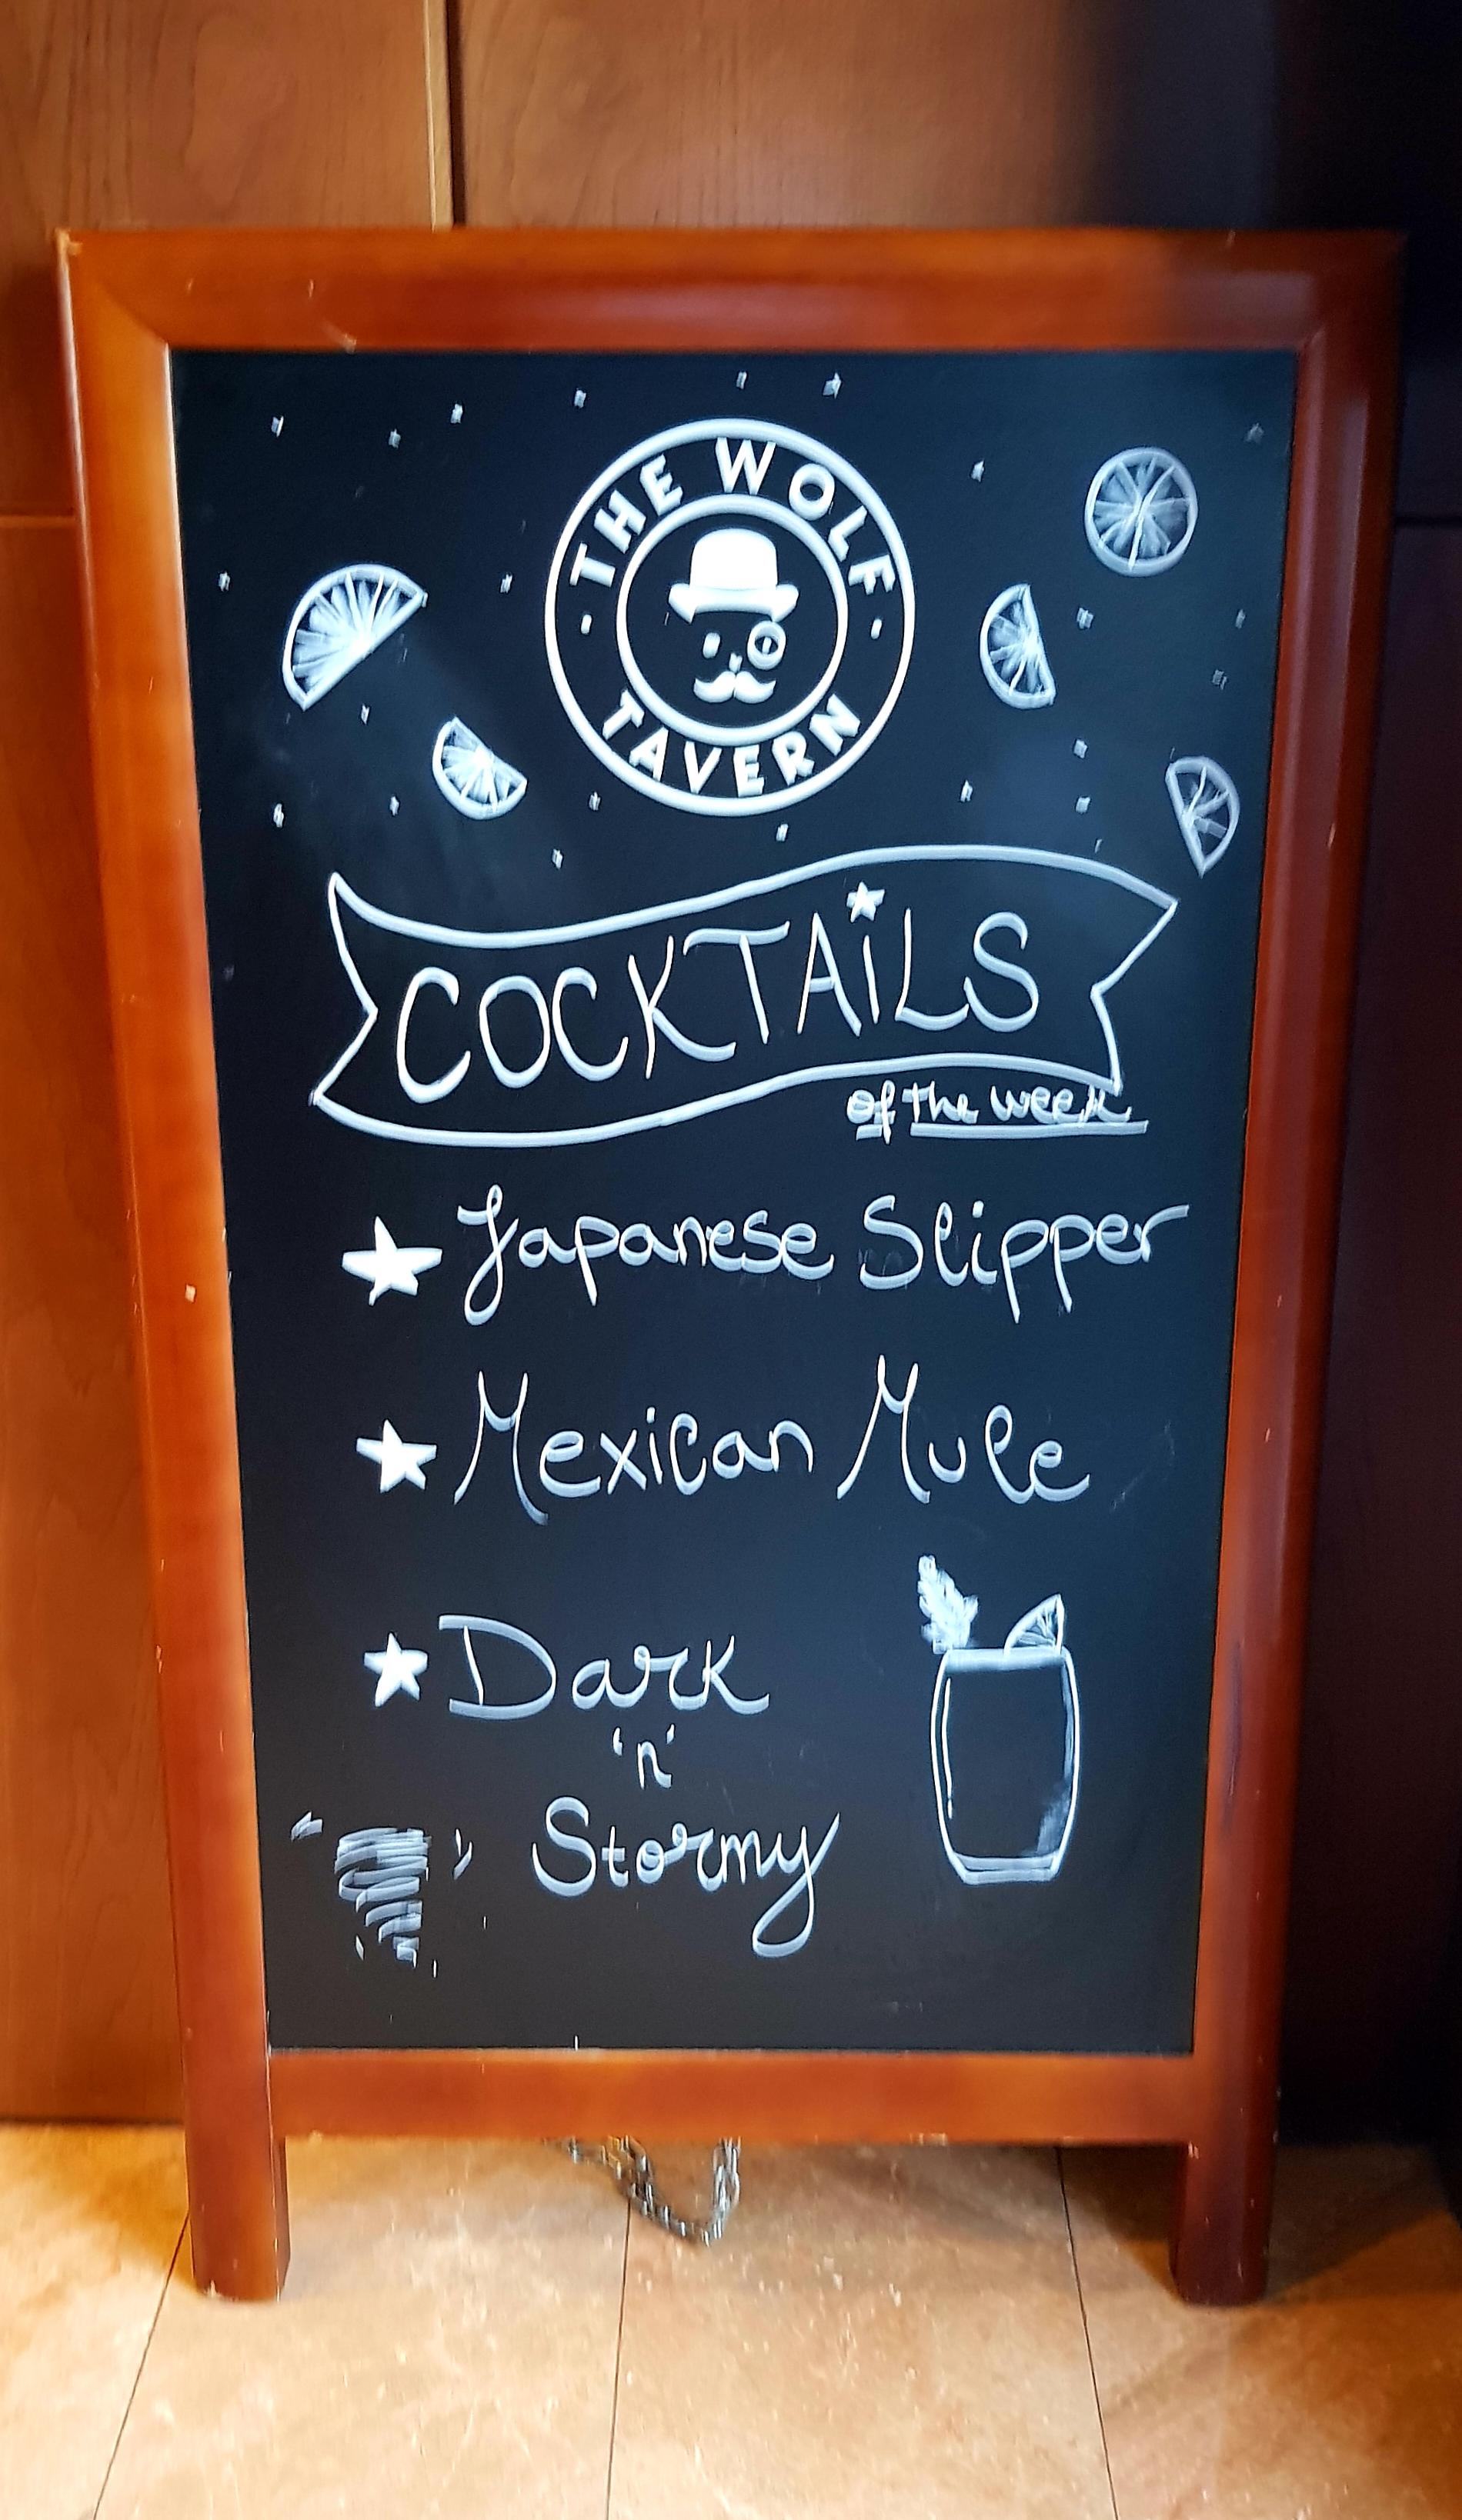 THE WOLF
TAVERN
COCKTAiLS
of the week
Japanese Slipper
Mexican Mule
Dark
'n'
Stormy